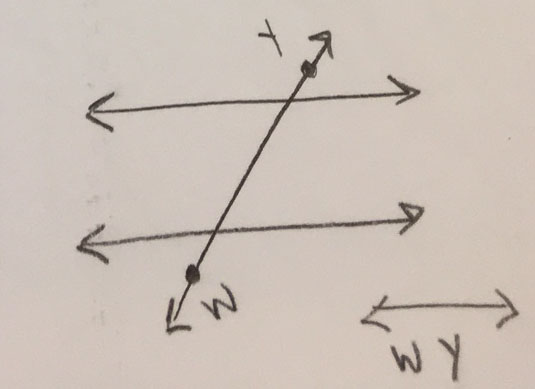 Y
W
WY